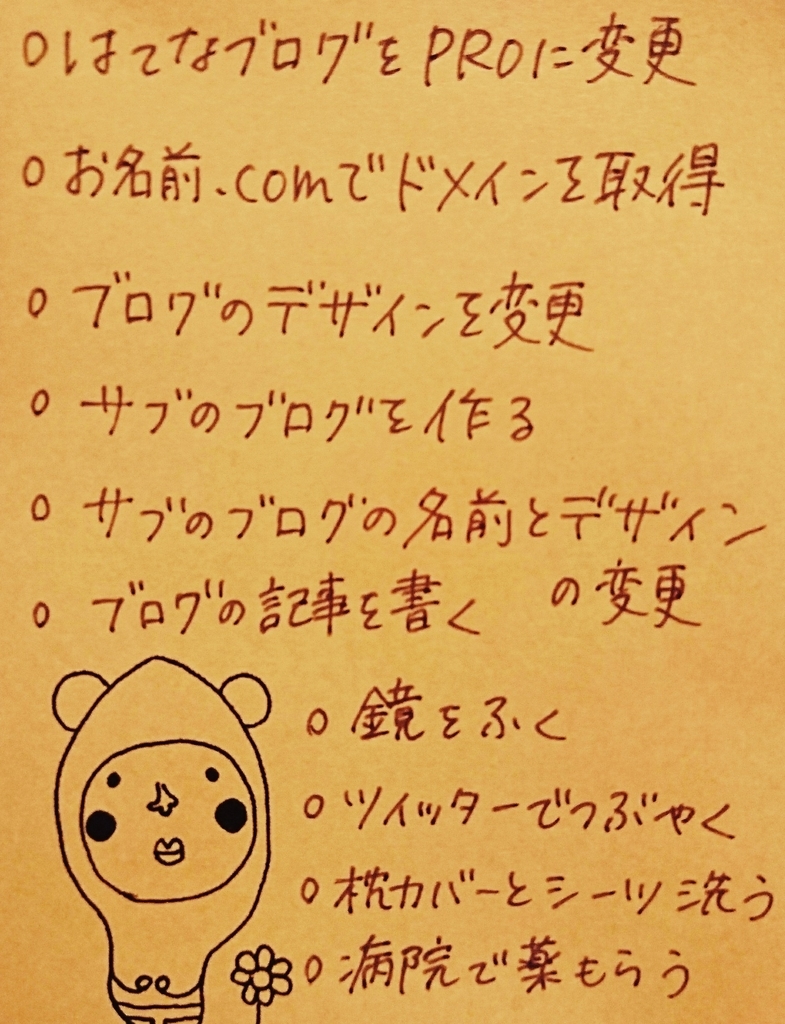 ○はてなブログをPROに変更
○お名前.comでドメインを取得
○ブログのデザインを変更
○サブのブログを作る
○サブのブログの名前とデザイン
の変更
○ブログの記事を書く
○鏡をふく
○ツイッターでつぶやく
○枕カバーとシーツ洗う
○病院で薬もらう